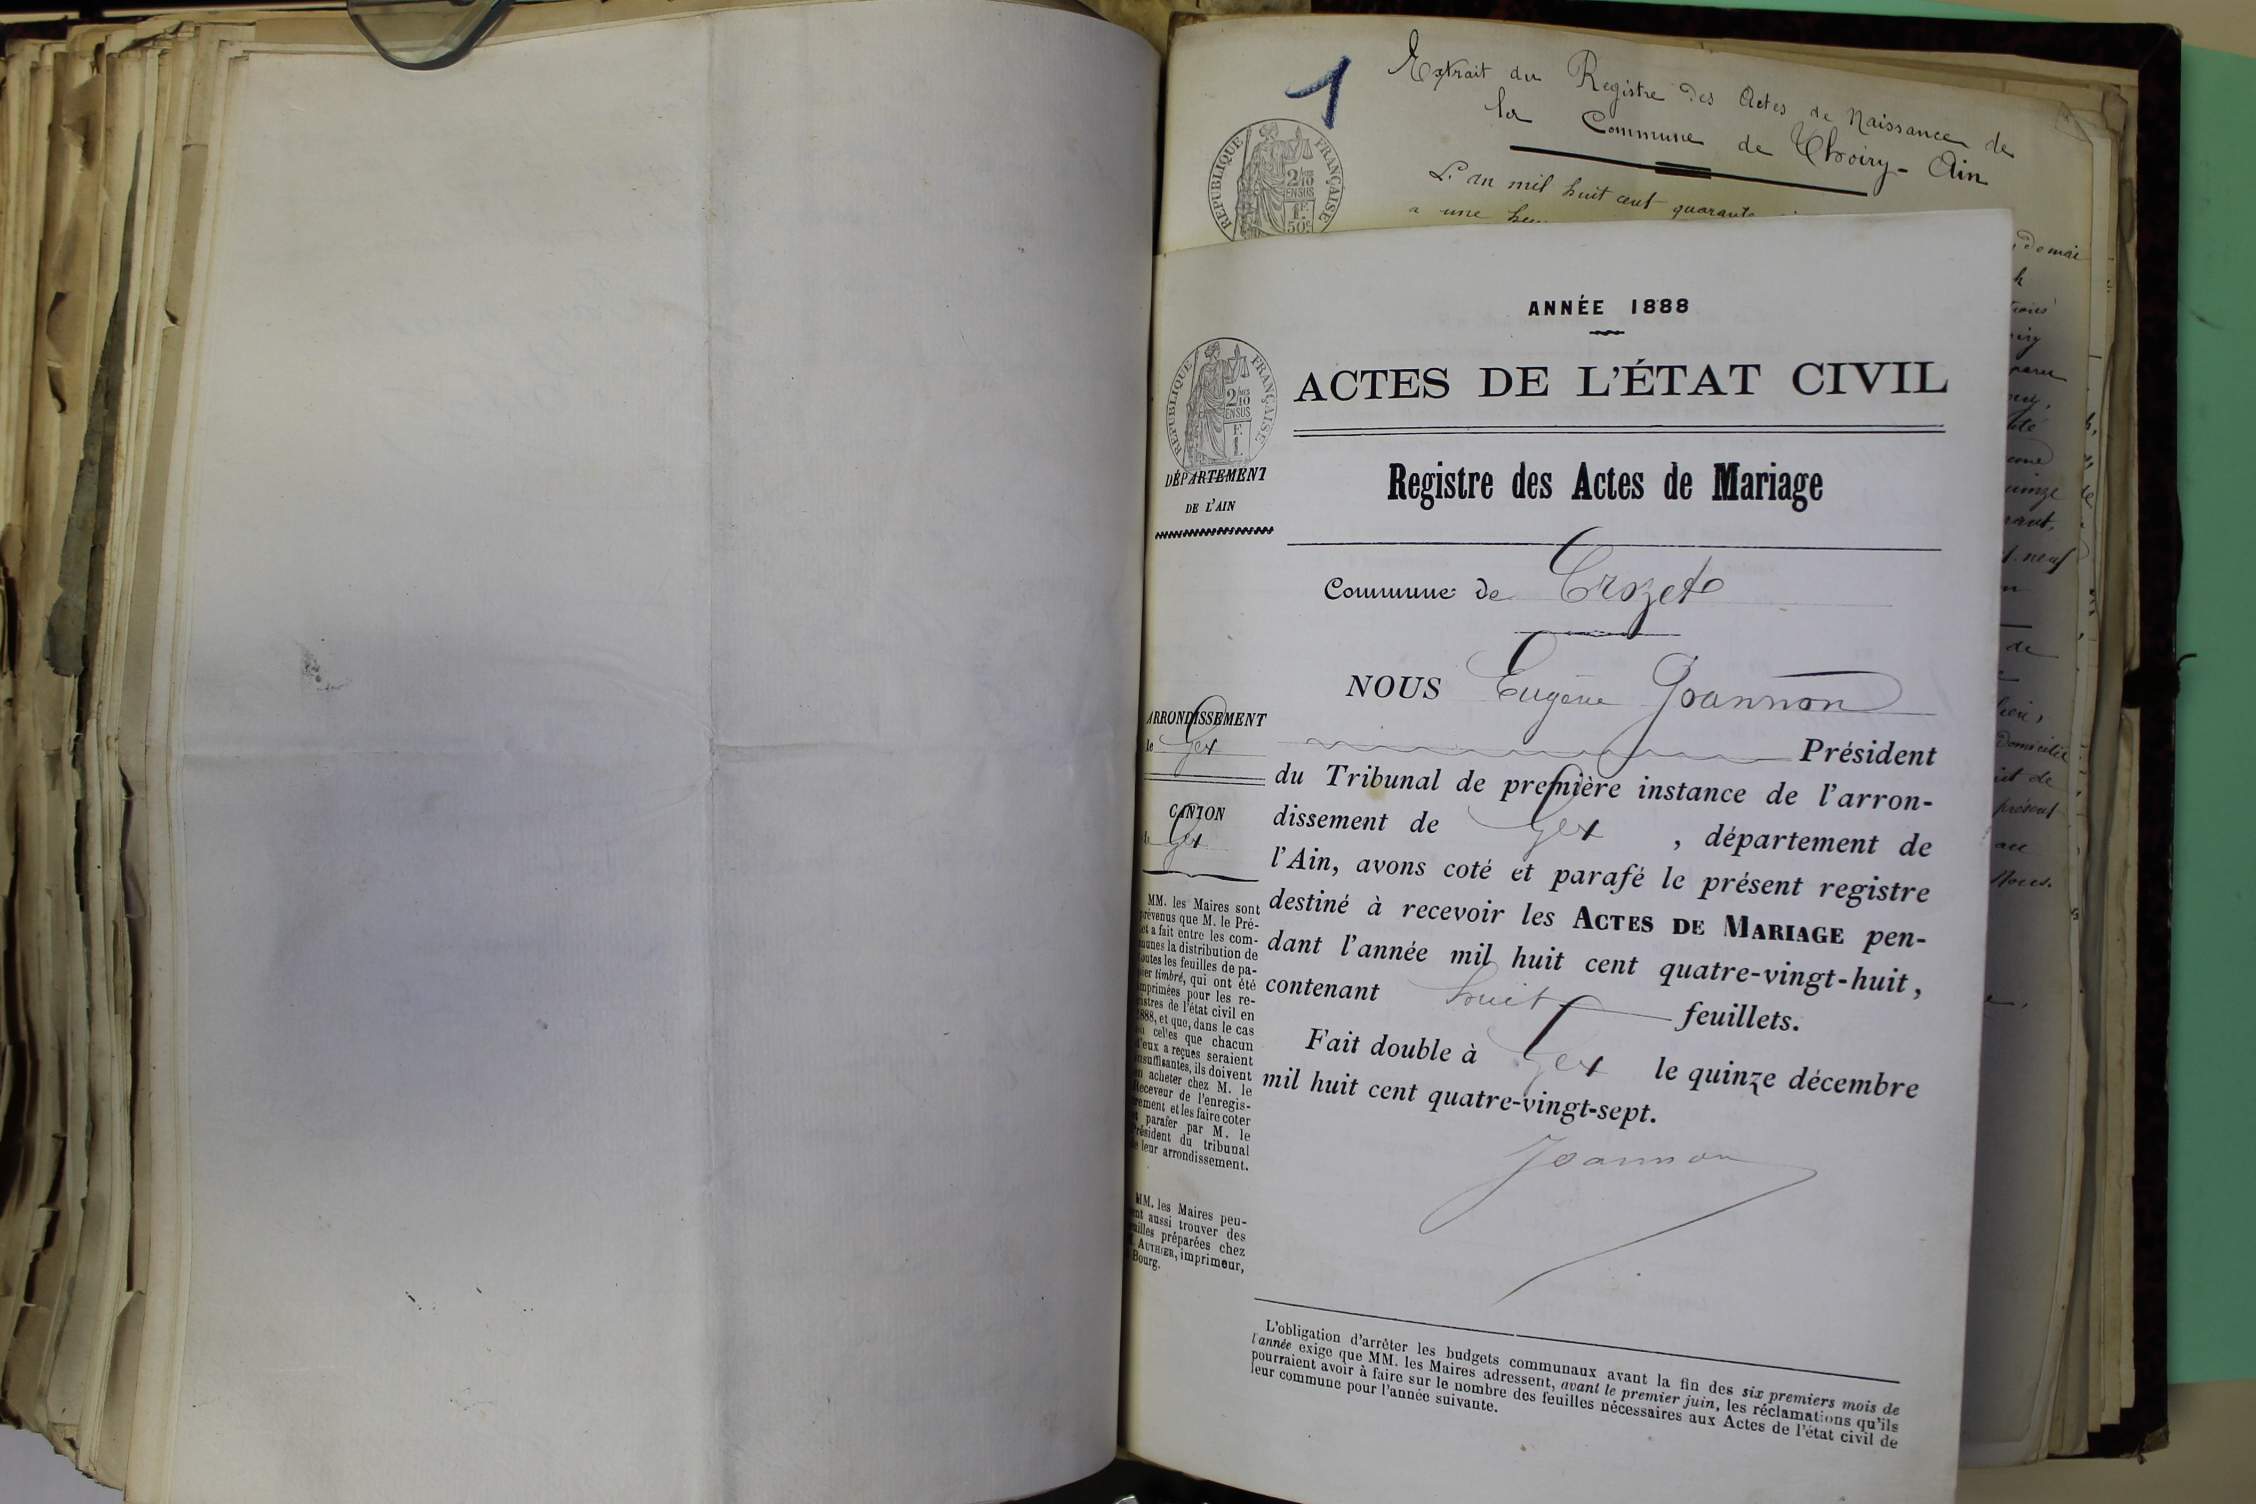 1
Extrait du Registre des Actes de Naissance de
la Commune de Thoiry - Ain
RÉPUBLIQUE FRANÇAISE
2/10
EN SUS
1F
50c
L'an mil huit cent quarante
a une
domai
h
neuf
de
domicilié
de
présent
au
ANNÉE 1888
ACTES DE L'ÉTAT CIVIL
RÉPUBLIQUE FRANÇAISE
2/10
EN SUS
F.
1.
DÉPARTEMENT
DE L'AIN
Registre des Actes de Mariage
Commune de Crozet
NOUS Eugène Joannon
ARRONDISSEMENT
de Gex
Président
du Tribunal de première instance de l'arron-
dissement de Gex, département de
l'Ain, avons coté et parafé le présent registre
destiné à recevoir les ACTES DE MARIAGE pen-
dant l'année mil huit cent quatre-vingt-huit,
contenant huit feuillets.
Fait double à Gex le quinze décembre
mil huit cent quatre-vingt-sept.
Joannon
CANTON
de Gex
MM. les Maires sont
prévenus que M. le Pré-
fet a fait entre les com-
munes la distribution de
toutes les feuilles de pa-
pier timbré, qui ont été
imprimées pour les re-
gistres de l'état civil en
1888, et que, dans le cas
où celles que chacun
d'eux a reçues seraient
insuffisantes, ils doivent
en acheter chez M. le
Receveur de l'enregis-
trement et les faire coter
et parafer par M. le
Président du tribunal
de leur arrondissement.
MM. les Maires peu-
vent aussi trouver des
feuilles préparées chez
M. AUTHIER, imprimeur,
à Bourg.
L'obligation d'arrêter les budgets communaux avant la fin des six premiers mois de
l'année exige que MM. les Maires adressent, avant le premier juin, les réclamations qu'ils
pourraient avoir à faire sur le nombre des feuilles nécessaires aux Actes de l'état civil de
leur commune pour l'année suivante.